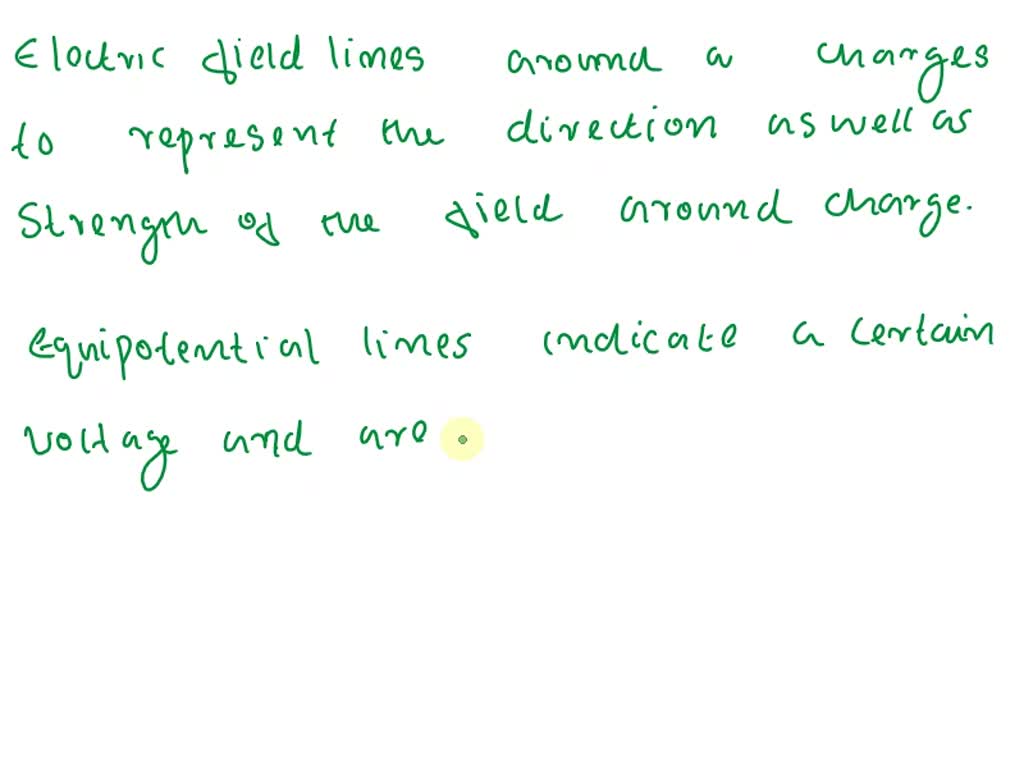 Electric field lines around a charges
to represent the direction as well as
Strength of the field around charge.
Equipotential lines indicate a certain
voltage and are